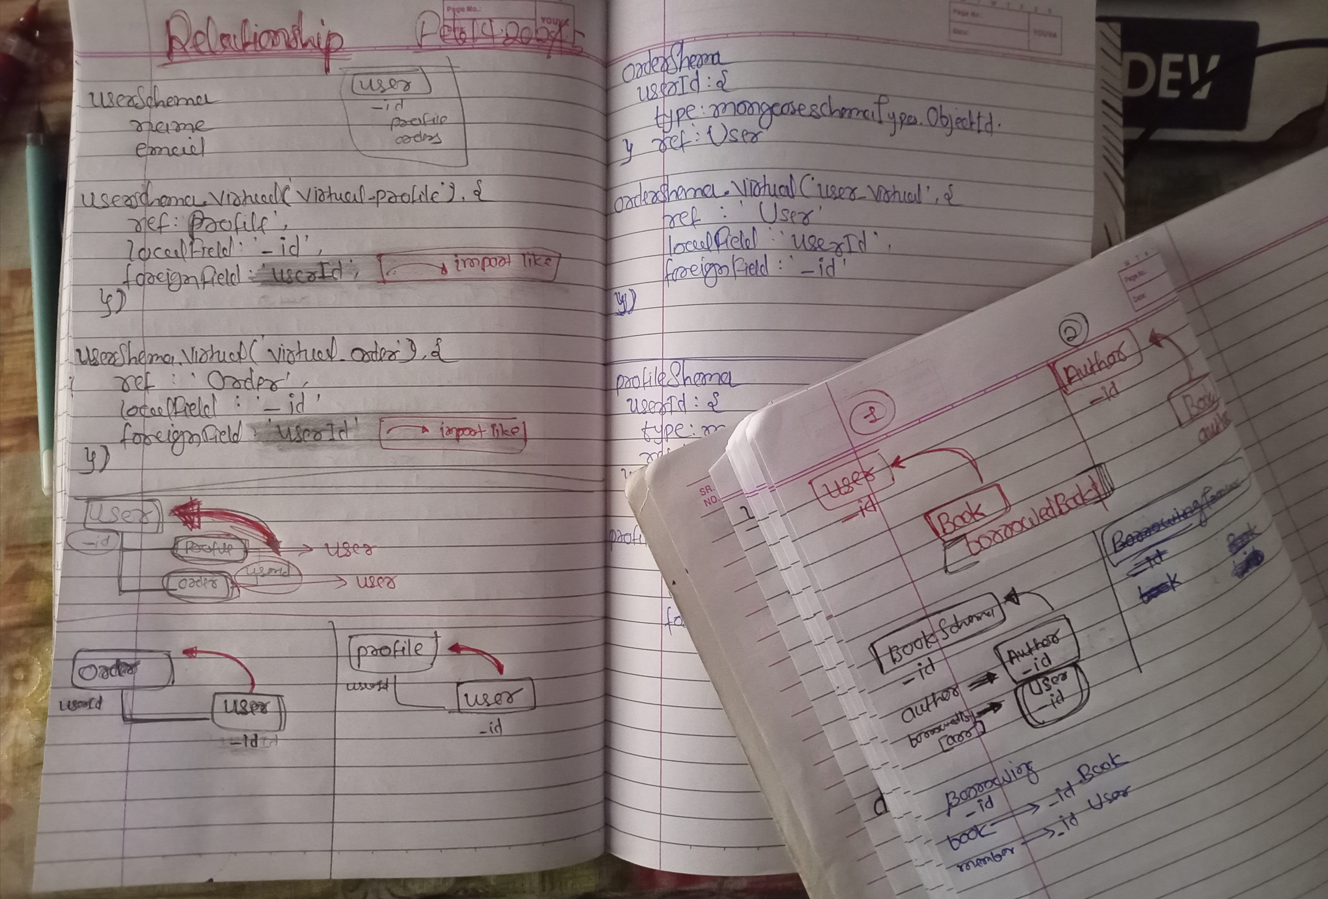 Relationship
Page No.:
YOUVA
userSchema
name
email
user
_id
profile
orders
userSchema.virtual('virtual-profile'), {
ref: Profile',
localField: '_id',
foreignField: 'userId',
import like
})
userShema.virtual('virtual_order'), {
ref : 'Order',
localField : '_id'
foreignField : 'userId'
import like
})
User
_id
Profile
user
order
userId
user
Order
userId
user
_id
profile
userId
user
_id
orderShema
userId: {
type: mongooseschemaTypes.ObjectId.
} ref: User
orderShema.virtual('user_virtual', {
ref : 'User'
localField : 'userId',
foreignField : '_id'
})
profileShema
userId: {
type: m
profi
DEV
SR.
NO.
1
User
_id
Book
borrowedBook
2
Author
_id
Book
BookSchema
_id
author
[arr]
Author
_id
User
_id
Borrowing
_id
book → _id Book
member → _id User